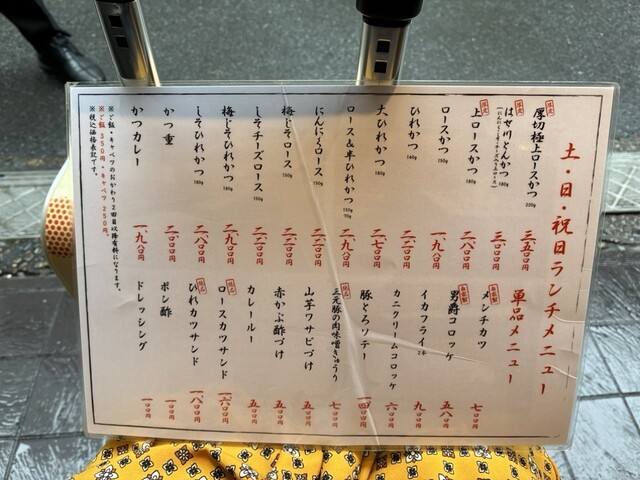 土・日・祝日ランチメニュー
限定
厚切極上ロースかつ 220g 三、五〇〇円
限定
はせ川とんかつ 180g 三、〇〇〇円
限定
上ロースかつ 180g 二、八〇〇円
ロースかつ 150g 二、二〇〇円
ひれかつ 140g 一、九八〇円
大ひれかつ 180g 二、七〇〇円
ロース&半ひれかつ 150g 70g 二、九〇〇円
にんにくロース 150g
梅じそロース 150g
しそチーズロース 150g
梅じそひれかつ 180g 二、九〇〇円
しそひれかつ 180g 二、八〇〇円
かつ重 二、〇〇〇円
かつカレー 一、九八〇円
※ご飯・キャベツのおかわり2回目以降有料になります。
※ご飯350円・キャベツ250円。
※税込価格表記です。
単品メニュー
メンチカツ 七〇〇円
自家製
男爵コロッケ 五八〇円
イカフライ 2本 九〇〇円
カニクリームコロッケ 六〇〇円
豚とろソテー 一、四〇〇円
逸品
三元豚の肉味噌きゅうり 七〇〇円
山芋ワサビづけ 五〇〇円
赤かぶ酢づけ 五〇〇円
カレールー 五〇〇円
逸品
ロースカツサンド 一、六〇〇円
逸品
ひれカツサンド 一、八〇〇円
ポン酢 一〇〇円
ドレッシング 一〇〇円